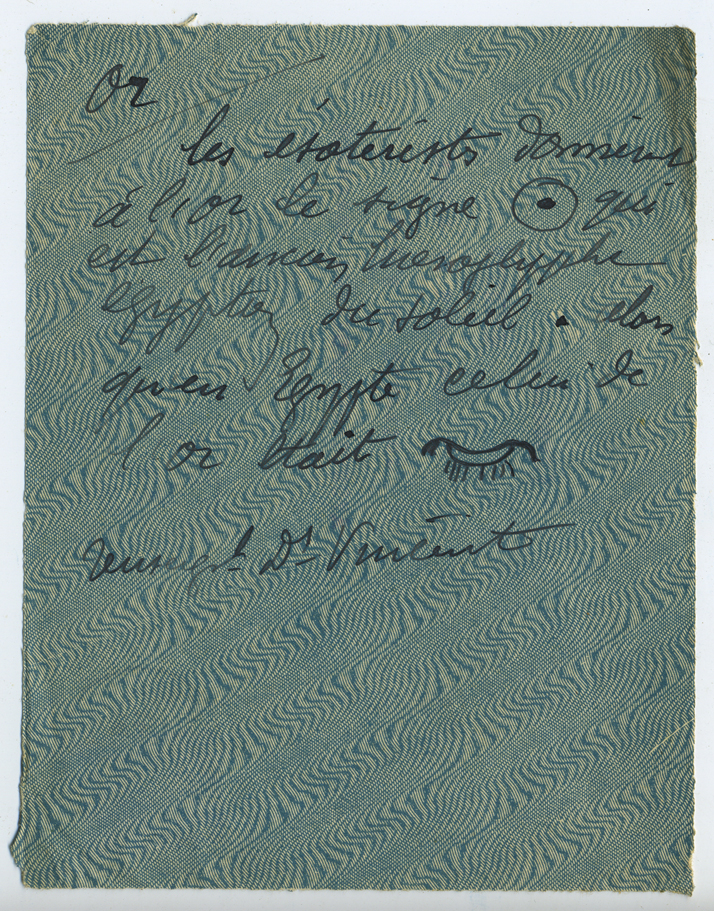 Or
les ésoterists donnèrent
à l'or le signe ☉ qui
est l'ancien hieroglyphe
egyptien du soleil. alors
qu'en Egypte celui de
l'or était
renseigt Dr Vincent